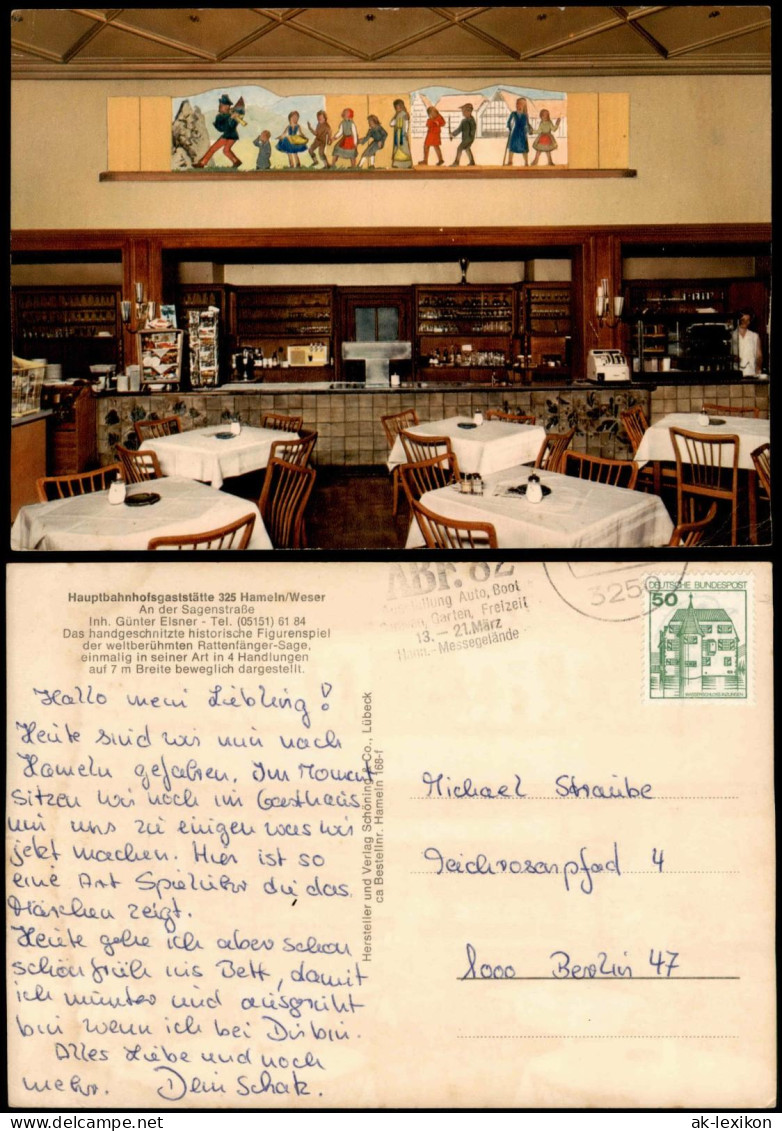 Hauptbahnhofsgaststätte 325 Hameln/Weser
An der Sagenstraße
Inh. Günter Elsner - Tel. (05151) 61 84
Das handgeschnitzte historische Figurenspiel
der weltberühmten Rattenfänger-Sage,
einmalig in seiner Art in 4 Handlungen
auf 7 m Breite beweglich dargestellt.
Hallo mein Liebling!
Heute sind wir nun nach
Hameln gefahren. Im Moment
sitzen wir noch im Gasthaus
um uns zu einigen was wir
jetzt machen. Hier ist so
eine Art Spieluhr die das
Märchen zeigt.
Heute gehe ich aber schon
schön früh ins Bett, damit
ich munter und ausgeruht
bin wenn ich bei Dir bin.
Alles Liebe und noch
mehr. Dein Schatz.
Hersteller und Verlag Schöning & Co., Lübeck
ca Bestellnr. Hameln 168-f
ABF. 82
Auto, Boot
Garten, Freizeit
13. - 21. März
Hann.-Messegelände
325
DEUTSCHE BUNDESPOST
50
WASSERSCHLOSS INZLINGEN
Michael Straube
Teichrosenpfad 4
1000 Berlin 47
ak-lexikon